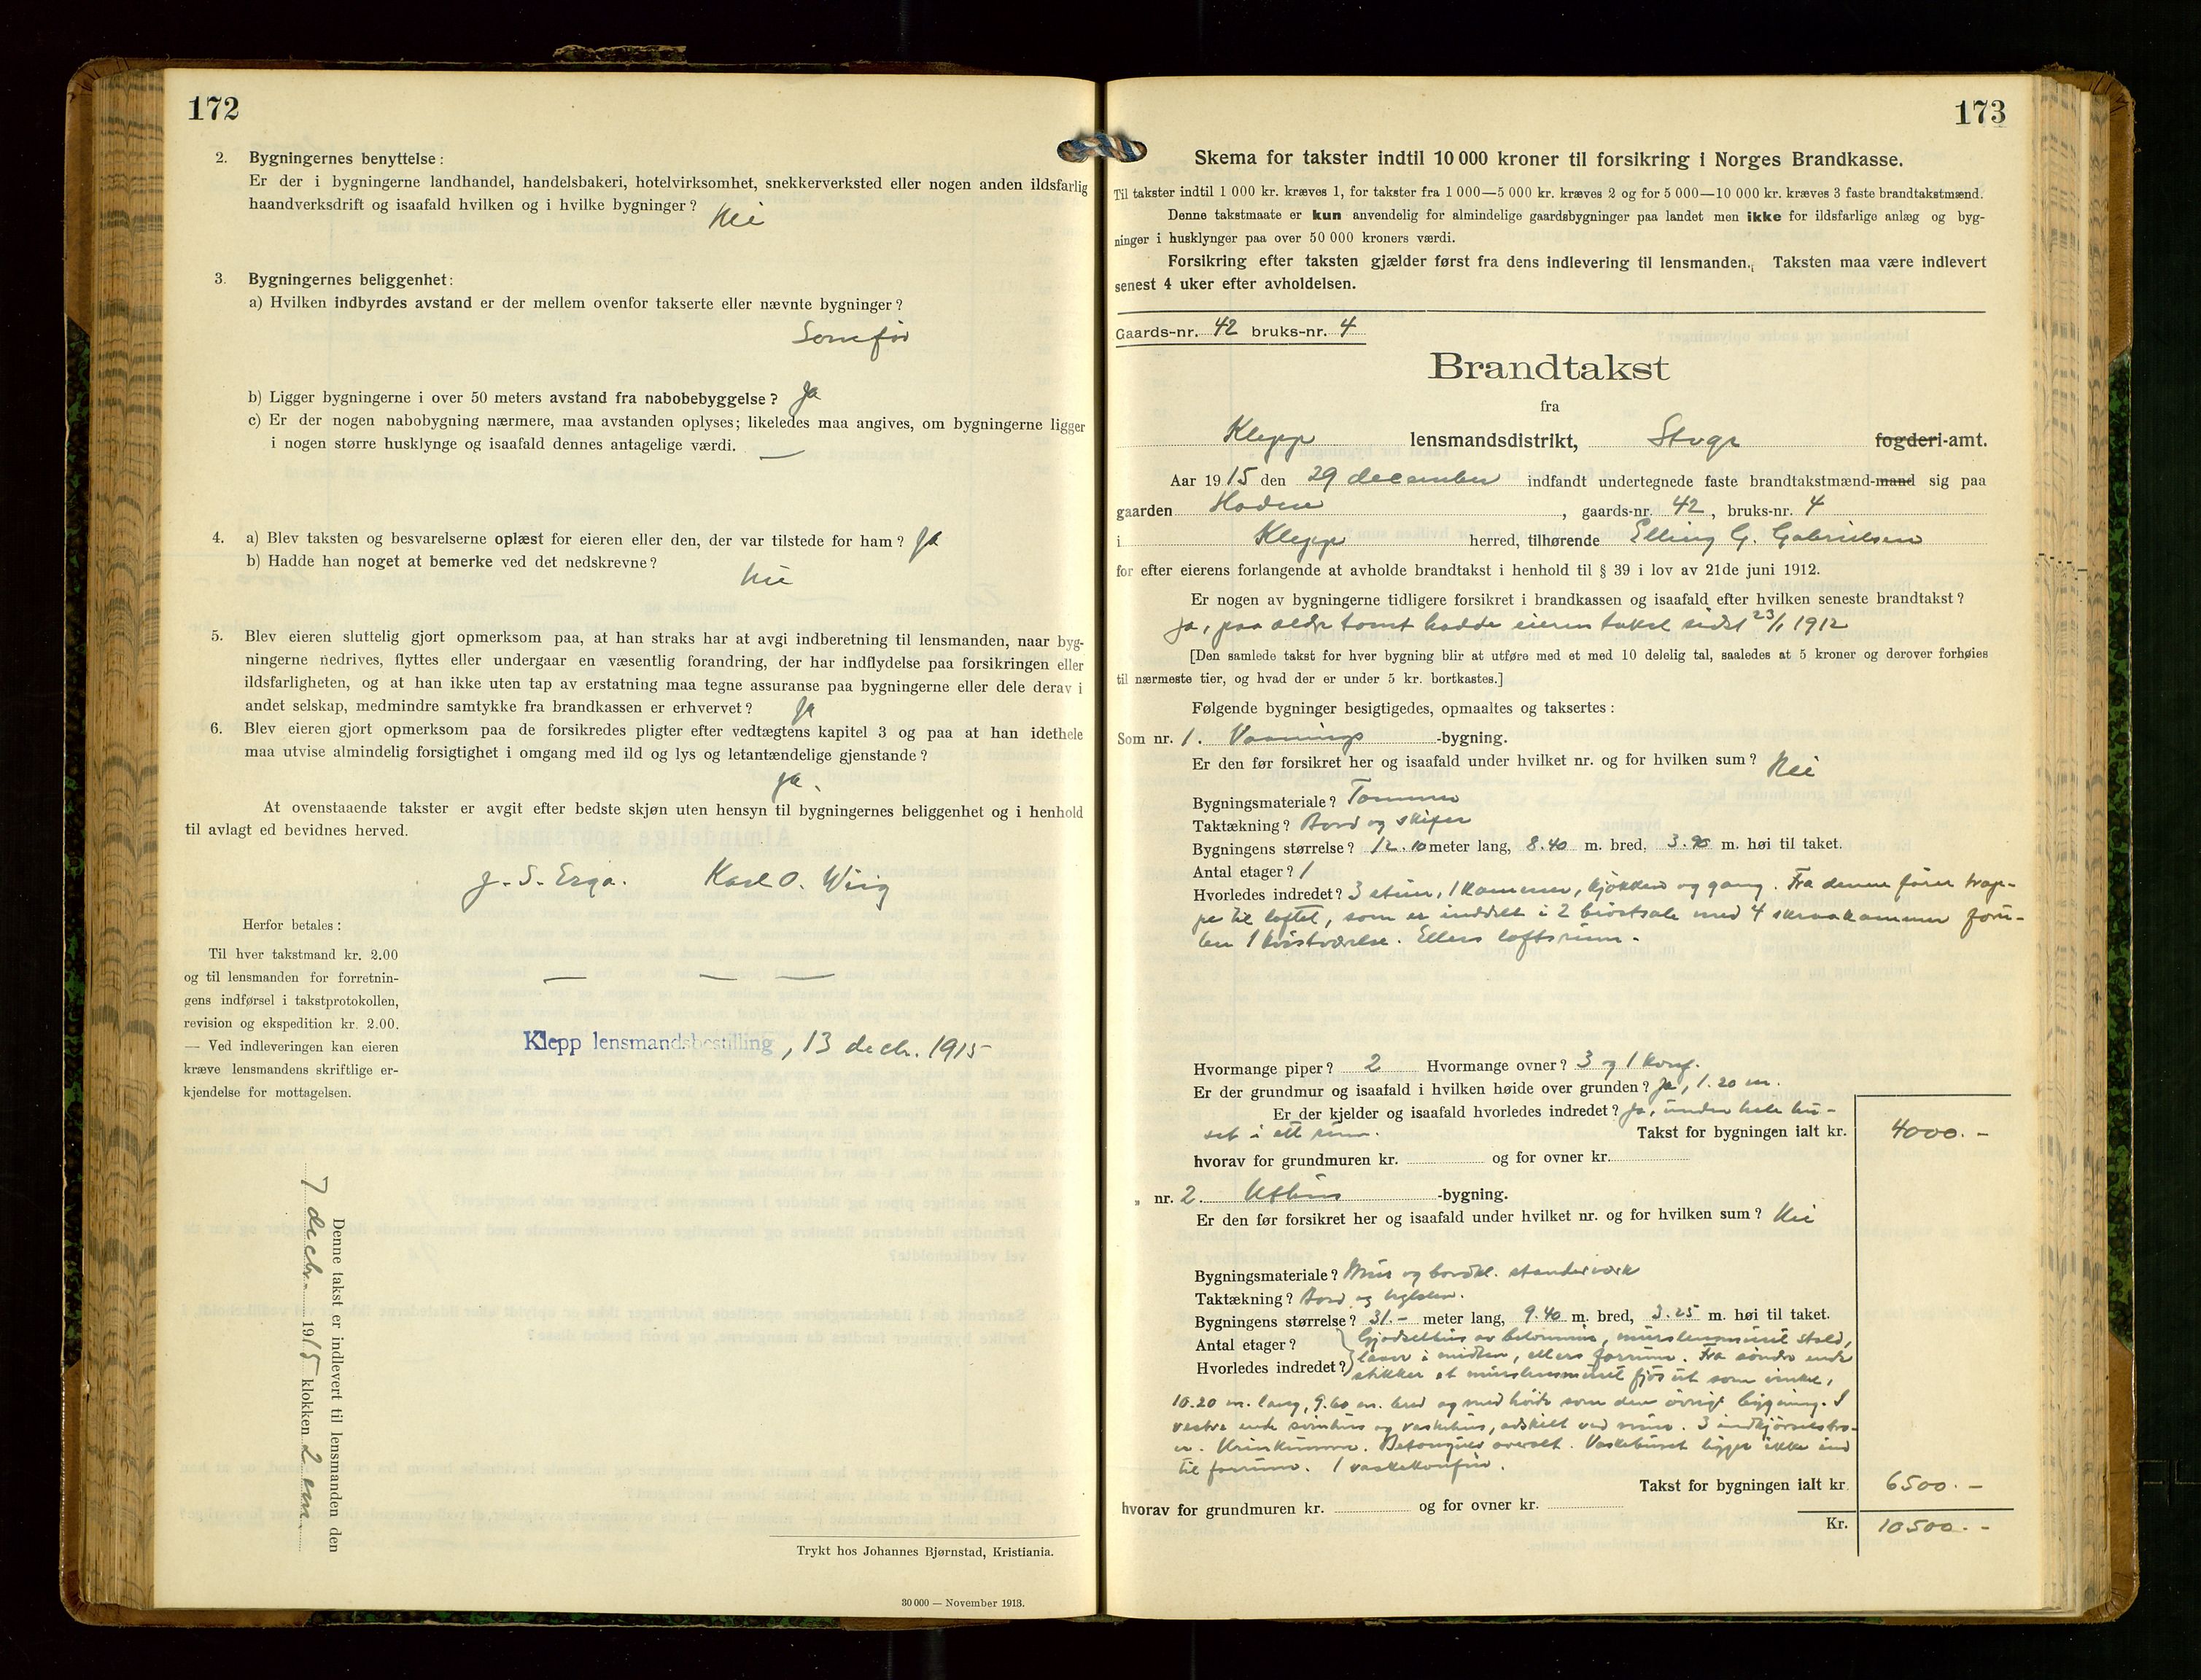 172
2. Bygningernes benyttelse:
Er der i bygningerne landhandel, handelsbakeri, hotelvirksomhet, snekkerverksted eller nogen anden ildsfarlig
haandverksdrift og isaafald hvilken og i hvilke bygninger? Nei
3. Bygningernes beliggenhet:
a) Hvilken indbyrdes avstand er der mellem ovenfor takserte eller nævnte bygninger?
Som før
b) Ligger bygningerne i over 50 meters avstand fra nabobebyggelse? Ja
c) Er der nogen nabobygning nærmere, maa avstanden oplyses; likeledes maa angives, om bygningerne ligger
i nogen større husklynge og isaafald dennes antagelige værdi. —
4. a) Blev taksten og besvarelserne oplæst for eieren eller den, der var tilstede for ham? Ja
b) Hadde han noget at bemerke ved det nedskrevne? Nei
5. Blev eieren sluttelig gjort opmerksom paa, at han straks har at avgi indberetning til lensmanden, naar byg-
ningerne nedrives, flyttes eller undergaar en væsentlig forandring, der har indflydelse paa forsikringen eller
ildsfarligheten, og at han ikke uten tap av erstatning maa tegne assuranse paa bygningerne eller dele derav i
andet selskap, medmindre samtykke fra brandkassen er erhvervet? Ja
6. Blev eieren gjort opmerksom paa de forsikredes pligter efter vedtægtens kapitel 3 og paa at han idethele
maa utvise almindelig forsigtighet i omgang med ild og lys og letantændelige gjenstande?
Ja.
At ovenstaaende takster er avgit efter bedste skjøn uten hensyn til bygningernes beliggenhet og i henhold
til avlagt ed bevidnes herved.
J. S. Erga. Karl O. Wiig
Herfor betales:
Til hver takstmand kr. 2.00
og til lensmanden for forretnin-
gens indførsel i takstprotokollen,
revision og ekspedition kr. 2.00.
— Ved indleveringen kan eieren
kræve lensmandens skriftlige er-
kjendelse for mottagelsen.
— — —
Klepp lensmandsbestilling, 13 decbr. 1915
Denne takst er indlevert til lensmanden den
7 decbr. 1915 klokken 2 em.
Trykt hos Johannes Bjørnstad, Kristiania.
30 000 — November 1913.
173
Skema for takster indtil 10 000 kroner til forsikring i Norges Brandkasse.
Til takster indtil 1 000 kr. kræves 1, for takster fra 1 000—5 000 kr. kræves 2 og for 5 000—10 000 kr. kræves 3 faste brandtakstmænd.
Denne takstmaate er kun anvendelig for almindelige gaardsbygninger paa landet men ikke for ildsfarlige anlæg og byg-
ninger i husklynger paa over 50 000 kroners værdi.
Forsikring efter taksten gjælder først fra dens indlevering til lensmanden. Taksten maa være indlevert
senest 4 uker efter avholdelsen.
Gaards-nr. 42 bruks-nr. 4
Brandtakst
fra
Klepp lensmandsdistrikt, Stvgr fogderi-amt.
Aar 1915 den 29 december indfandt undertegnede faste brandtakstmænd-mand sig paa
gaarden , gaards-nr. 42, bruks-nr. 4
i Klepp herred, tilhørende Elling G. Gabrielsen
for efter eierens forlangende at avholde brandtakst i henhold til § 39 i lov av 21de juni 1912.
Er nogen av bygningerne tidligere forsikret i brandkassen og isaafald efter hvilken seneste brandtakst?
Ja, paa ældre tomt hadde eieren takst sidst 23/1 1912
[Den samlede takst for hver bygning blir at utføre med et med 10 delelig tal, saaledes at 5 kroner og derover forhøies
til nærmeste tier, og hvad der er under 5 kr. bortkastes.]
Følgende bygninger besigtigedes, opmaaltes og taksertes:
Som nr. 1. Vaanings -bygning.
Er den før forsikret her og isaafald under hvilket nr. og for hvilken sum? Nei
Bygningsmateriale? Tømmer
Taktækning? Bord og skifer
Bygningens størrelse? 12.10 meter lang, 8.40 m. bred, 3.90 m. høi til taket.
Antal etager? 1
Hvorledes indredet? 3 stuer, 1 kammer, kjøkken og gang. Fra denne fører trap-
pe til loftet, som er inddelt i 2 kvistsale med 4 skraakammer foru-
ten 1 kvistværelse. Ellers loftsrum.
Hvormange piper? 2 Hvormange ovner? 3 og 1 komf.
Er der grundmur og isaafald i hvilken høide over grunden? Ja, 1.20 m.
Er der kjelder og isaafald hvorledes indredet? Ja, under hele hu-
set i ett rum. Takst for bygningen ialt kr. 4000.-
hvorav for grundmuren kr. og for ovner kr.
" nr. 2. Uthus -bygning.
Er den før forsikret her og isaafald under hvilket nr. og for hvilken sum? Nei
Bygningsmateriale? Mur og bordkl. standerverk
Taktækning? Bord og teglsten.
Bygningens størrelse? 31.- meter lang, 9.40 m. bred, 3.25 m. høi til taket.
Antal etager? Gjødselhus av betonmur, murstensmuret stald,
Hvorledes indredet? laaer i midten, ellers forrum. Fra søndre ende
stikker et murstensmuret fjøs ut som vinkel,
10.20 m. lang, 9.60 m. bred og med høide som den øvrige bygning. I
vestre ende svinhus og vaskehus, adskilt ved mur. 3 indkjørselsbro-
er. Urinkumme. Betongulv overalt. Vaskehuset ligger ikke ind
til forrum. 1 vaskekomfur.
Takst for bygningen ialt kr. 6500.-
hvorav for grundmuren kr. og for ovner kr.
Kr. 10500.-